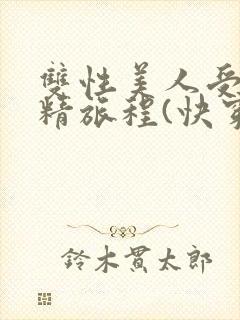 雙性美人受
精旅程(快穿
鈴木貫太郎